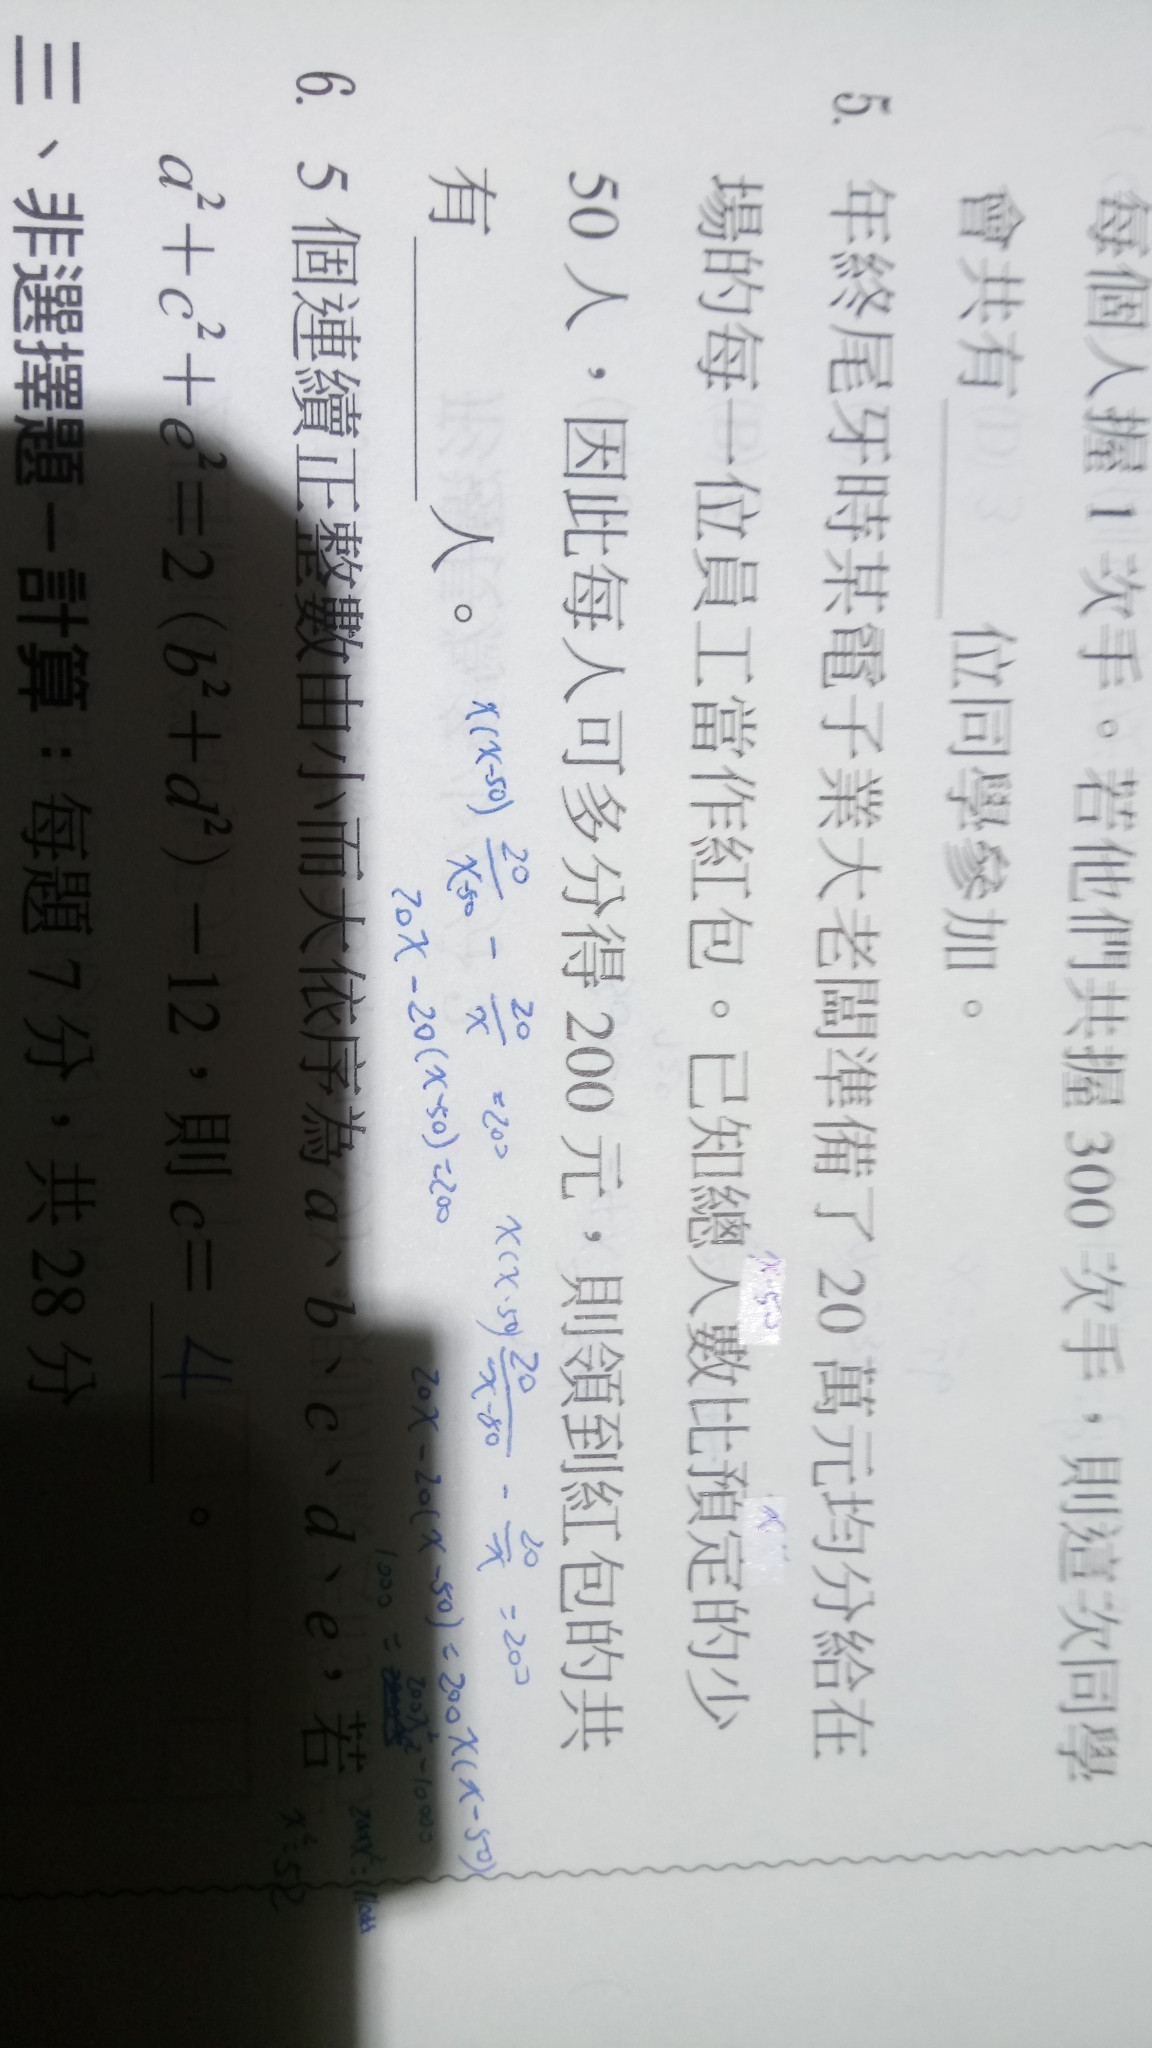 每個人握 1 次手。若他們共握 300 次手，則這次同學
會共有______位同學參加。
5. 年終尾牙時某電子業大老闆準備了 20 萬元均分給在
x-50 x
場的每一位員工當作紅包。已知總人數比預定的少
50 人，因此每人可多分得 200 元，則領到紅包的共
有______人。
x(x-50) 20/x-50 - 20/x = 200
20x-20(x-50)=200
x(x-50) 20/x-50 - 20/x = 200
20x-20(x-50)=200x(x-50)
1000 = 200x²-10000
x²=55
6. 5 個連續正整數由小而大依序為 a、b、c、d、e，若
a²+c²+e²=2(b²+d²)-12，則 c=4。
三、非選擇題－計算：每題 7 分，共 28 分